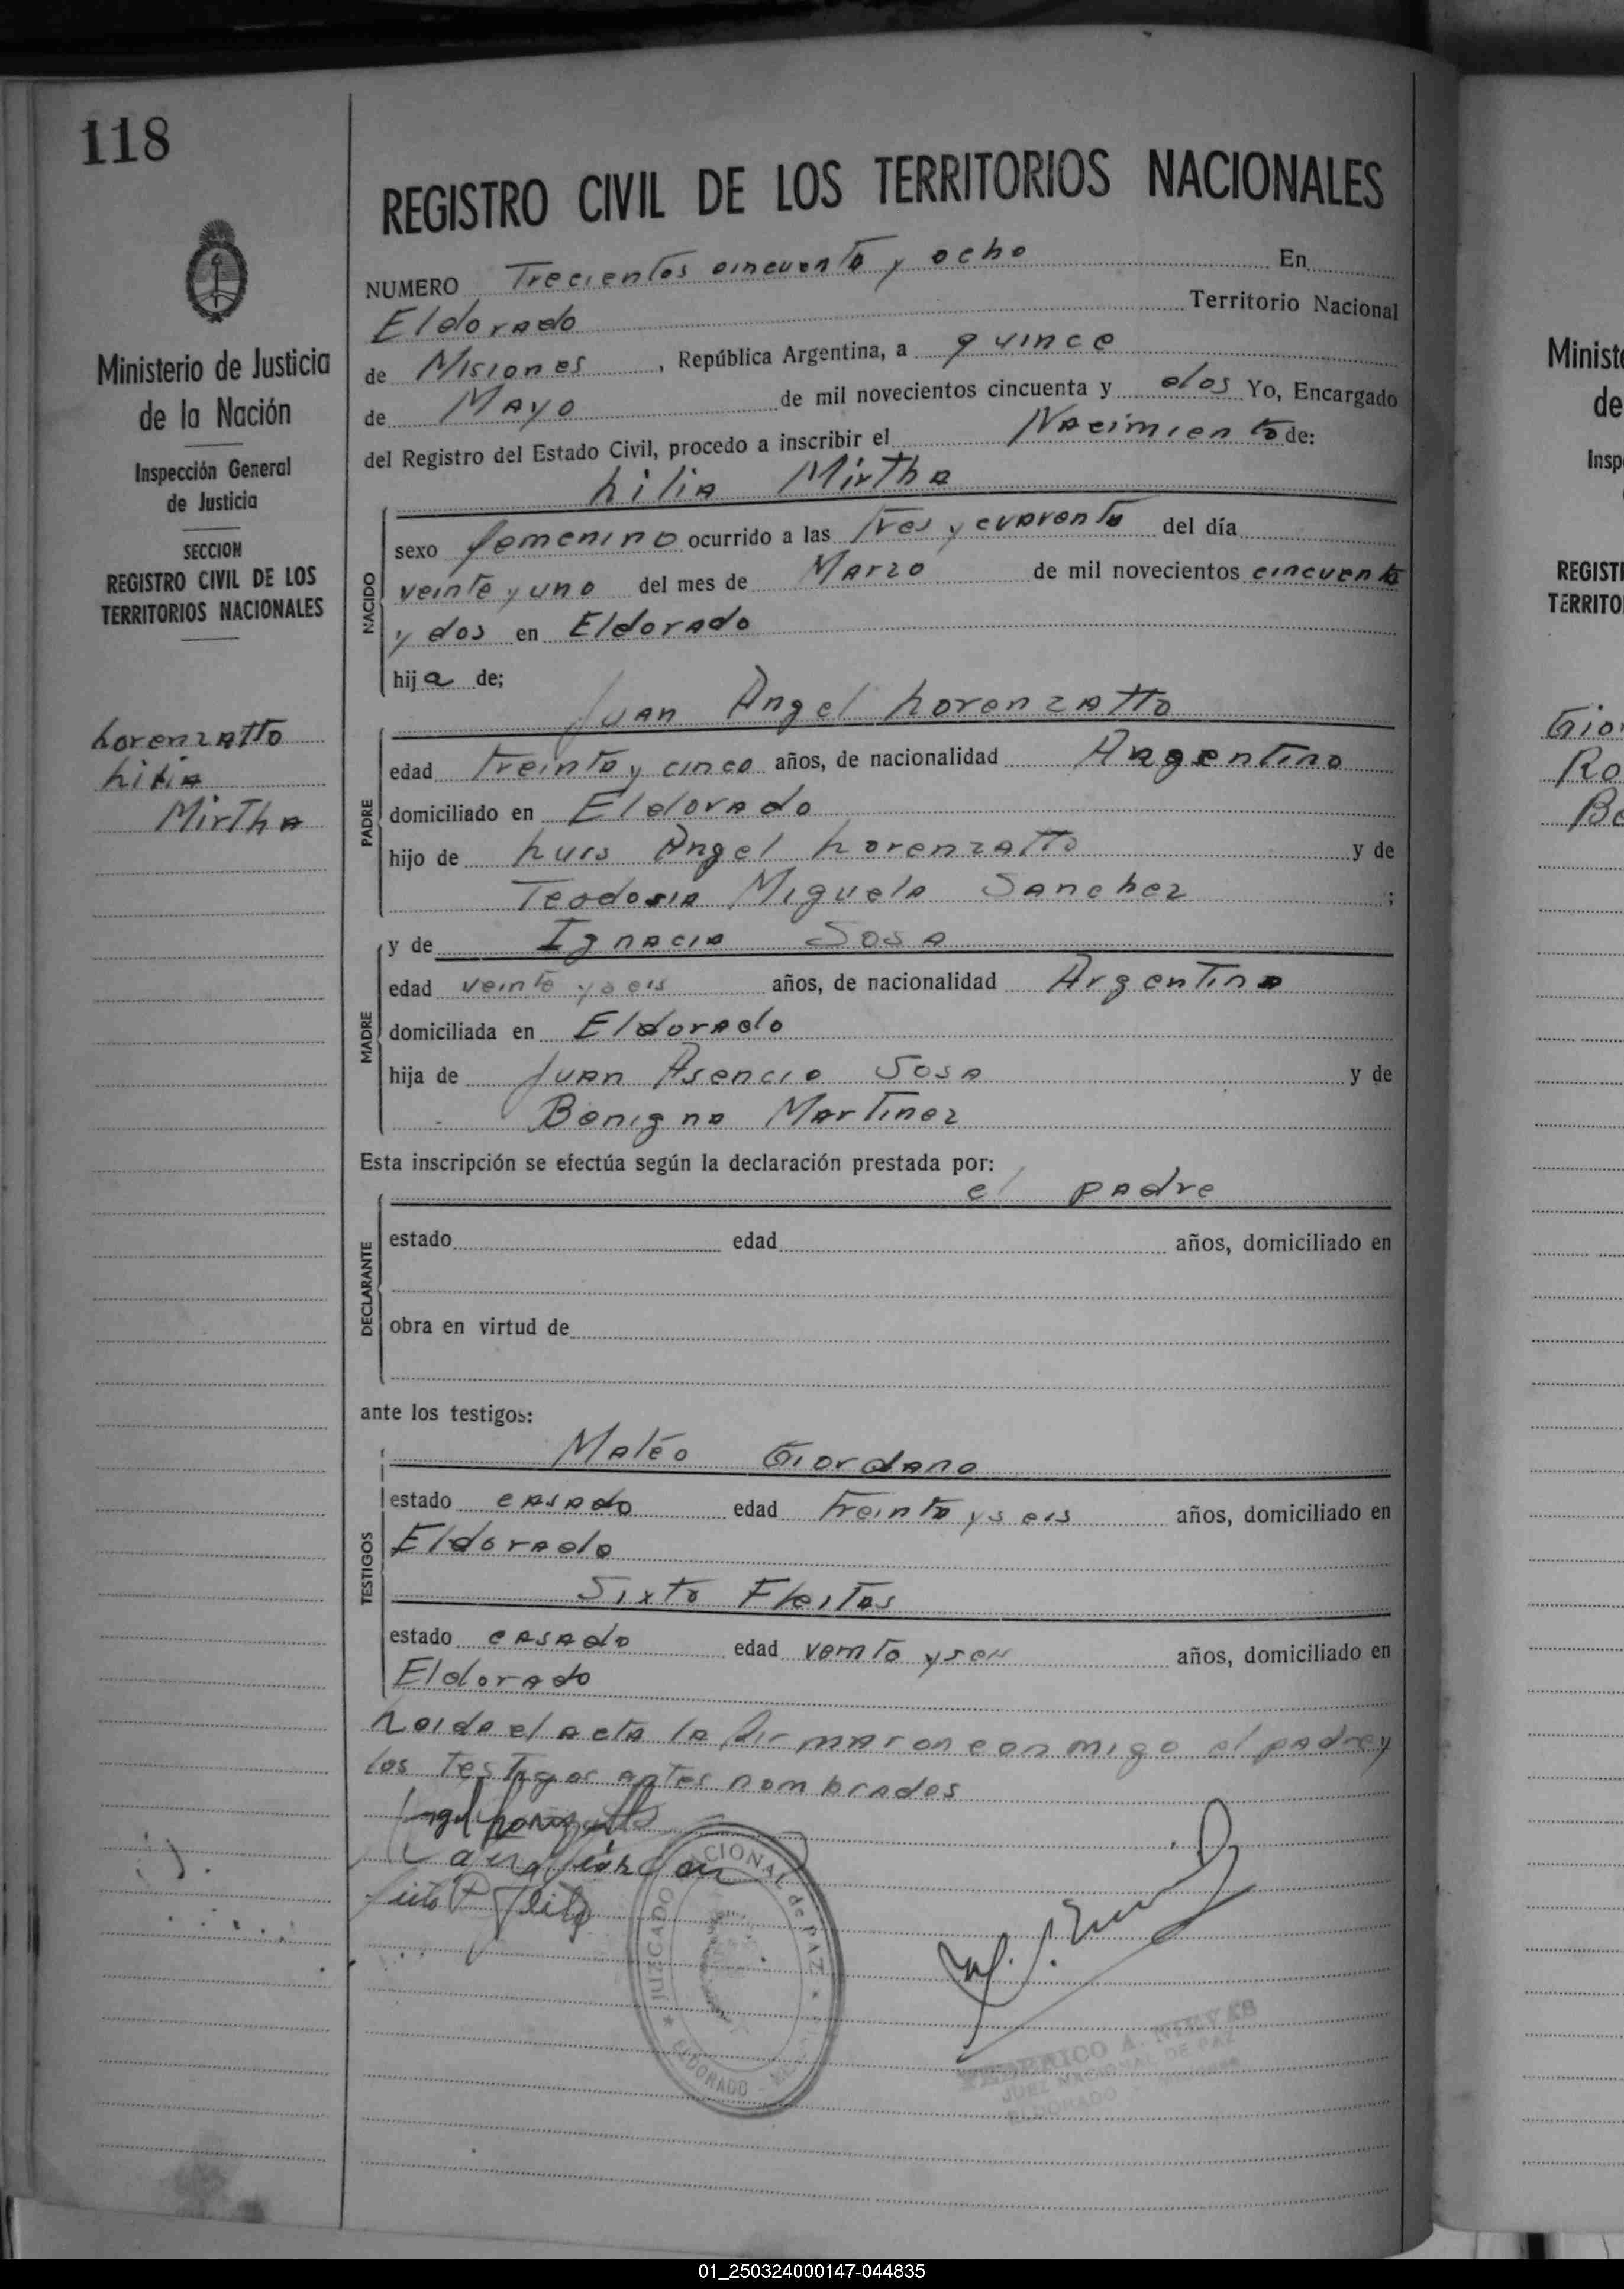 118
REGISTRO CIVIL DE LOS TERRITORIOS NACIONALES
Ministerio de Justicia
de la Nación
Inspección General
de Justicia
SECCION
REGISTRO CIVIL DE LOS
TERRITORIOS NACIONALES
Lorenzatto
Lilia
Mirtha
NUMERO Trecientos cincuenta y ocho En
Eldorado Territorio Nacional
de Misiones, República Argentina, a quince
de Mayo de mil novecientos cincuenta y dos Yo, Encargado
del Registro del Estado Civil, procedo a inscribir el Nacimiento de:
Lilia Mirtha
NACIDO
sexo femenino ocurrido a las Tres y cuarenta del día
veinte y uno del mes de Marzo de mil novecientos cincuenta
y dos en Eldorado
hija de;
Juan Angel Lorenzatto
PADRE
edad Treinta y cinco años, de nacionalidad Argentino
domiciliado en Eldorado
hijo de Luis Angel Lorenzatto y de
Teodosia Miguela Sanchez ;
MADRE
y de Ignacia Sosa
edad veinte y seis años, de nacionalidad Argentina
domiciliada en Eldorado
hija de Juan Asencio Sosa y de
Benigna Martinez
Esta inscripción se efectúa según la declaración prestada por:
el padre
DECLARANTE
estado edad años, domiciliado en
obra en virtud de
ante los testigos:
TESTIGOS
Matéo Giordano
estado casado edad Treinta y seis años, domiciliado en
Eldorado
Sixto Fleitas
estado casado edad veinte y seis años, domiciliado en
Eldorado
Leida el acta la firmaron conmigo el padre y
los Testigos antes nombrados
JUZGADO NACIONAL de PAZ
ELDORADO
FEDERICO A. NIEVAS
JUEZ NACIONAL DE PAZ
ELDORADO
Minist
de
Insp
REGIST
TERRITO
Gio
Ro
01_250324000147-044835